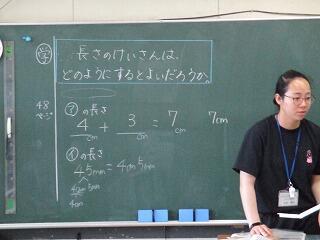 学
長さのけいさんは、
どのようにするとよいだろうか。
48
ページ
㋐の長さ
4 + 3 = 7 7cm
cm cm cm
㋑の長さ
45mm = 4cm 5mm
40mm 5mm
4cm